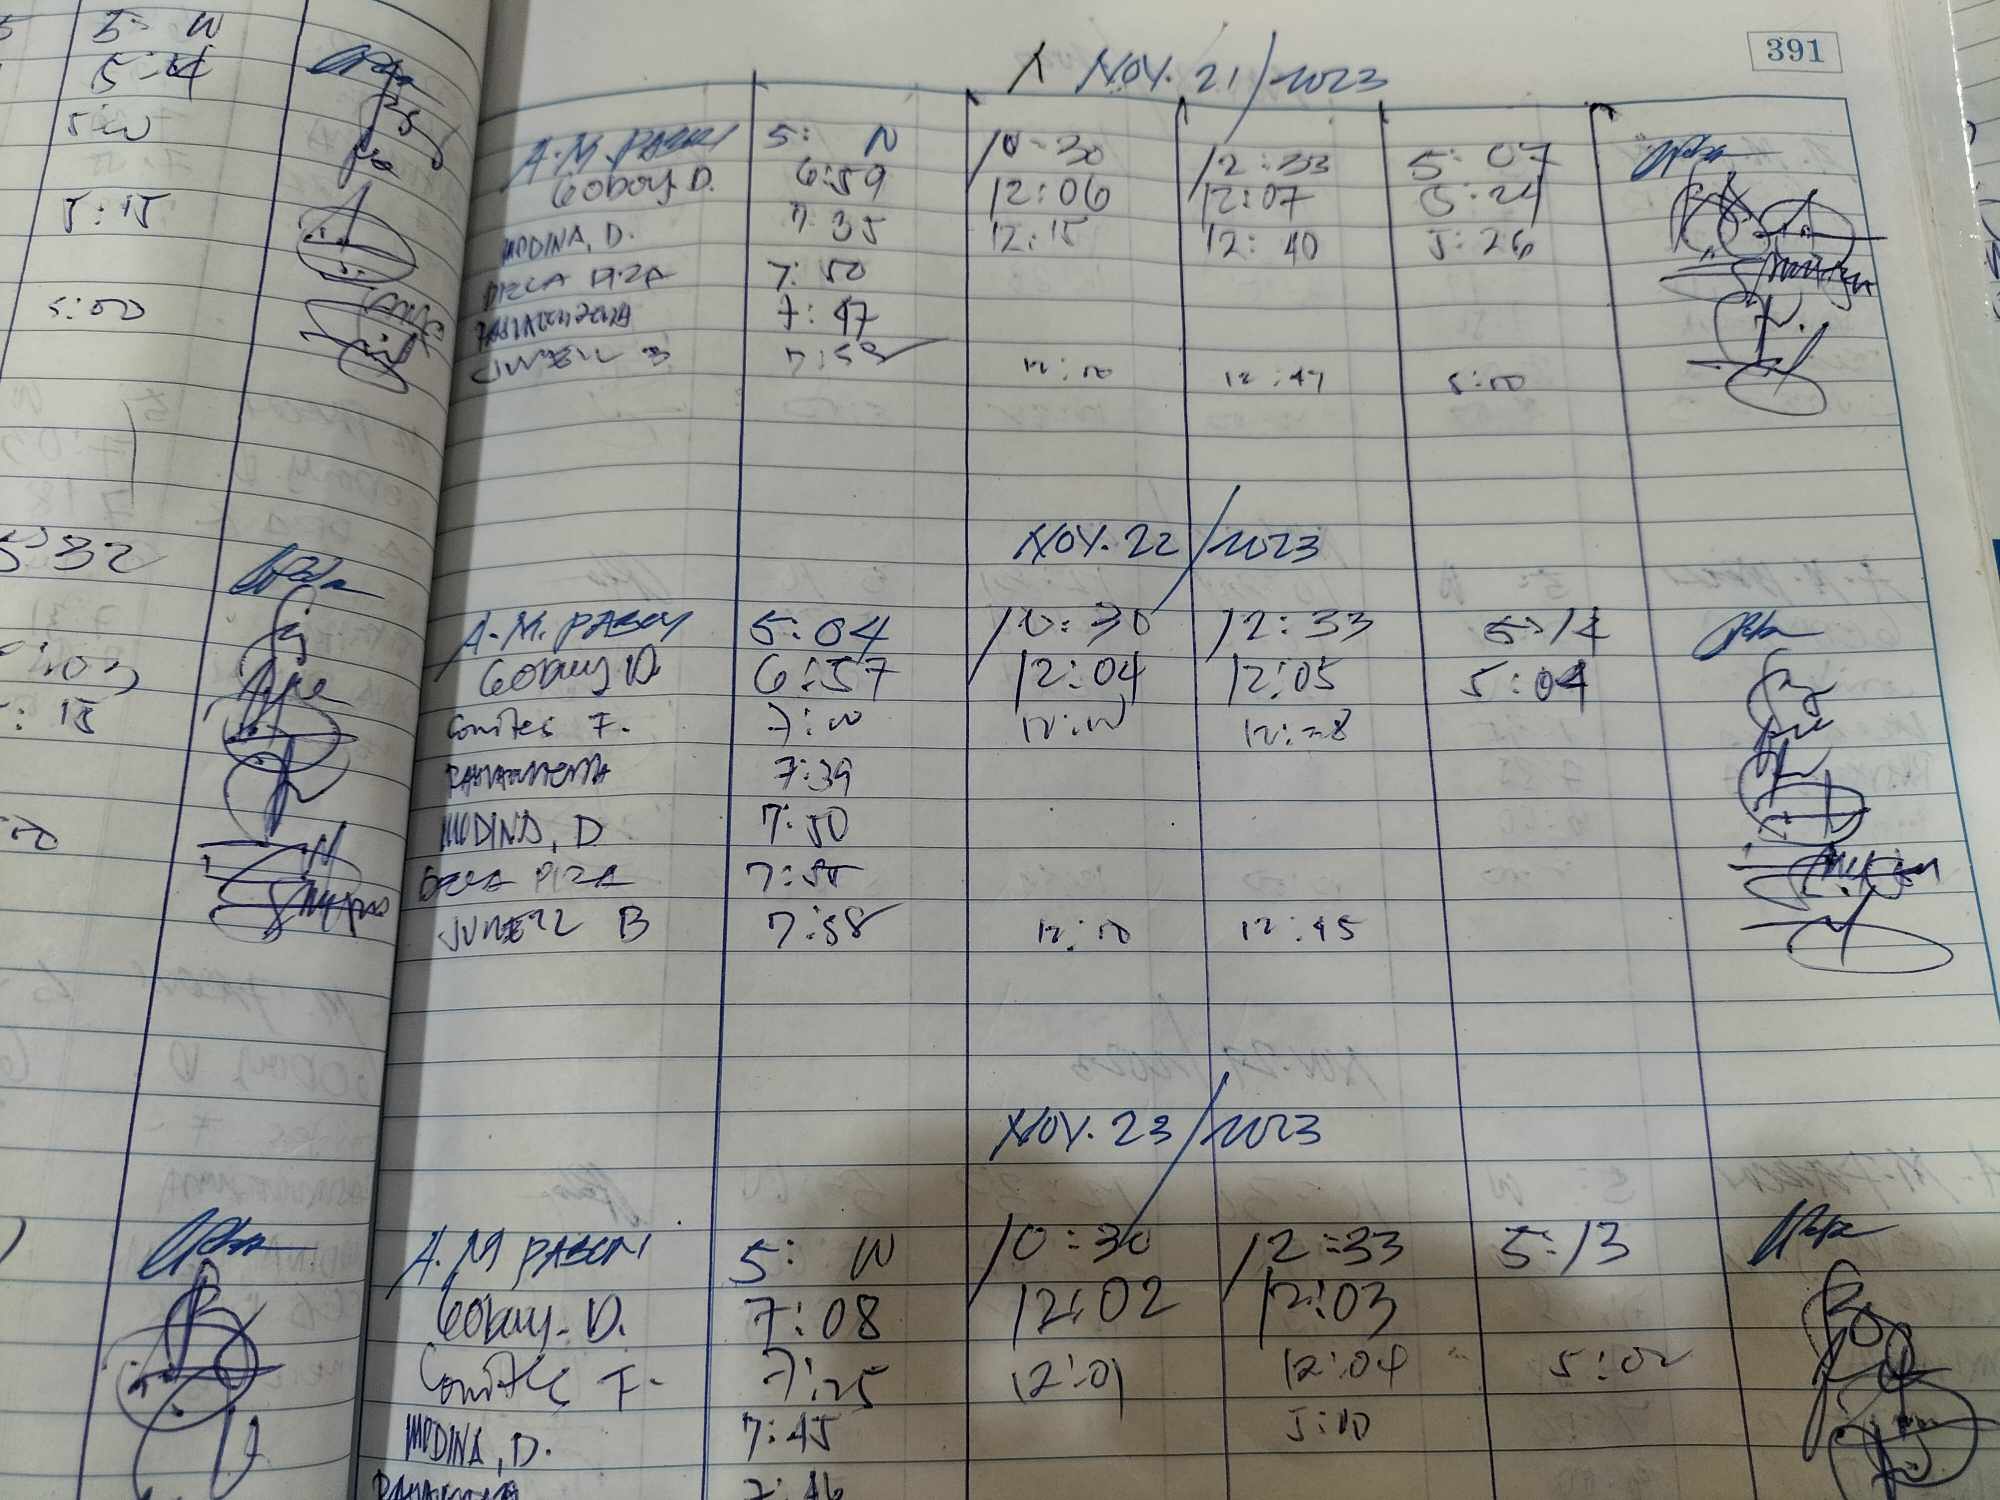 5: W
5:14
5:W
5:15
5:00
5:32
: 15
391
NOV. 21/2023
A.M. PABON 5: W 10:30 12:33 5:07
Goboy D. 6:59 12:06 12:07 5:24
MEDINA, D. 7:35 12:15 12:40 5:26
7:50
7:47
JUNELL B 7:58 12:10 12:47 5:00
NOV. 22/2023
A.M. PABON 5:04 10:30 12:33 5:14
Goboy D. 6:57 12:04 12:05 5:04
Comites F. 7:W 12:W 12:28
7:39
MEDINA, D 7:50
7:55
JUNELL B 7:58 12:10 12:45
NOV. 23/2023
A.M PABON 5: W 10:30 12:33 5:13
Goboy. D. 7:08 12:02 12:03
Comites F. 7:25 12:01 12:04 5:02
MEDINA, D. 7:45 5:10
7:46